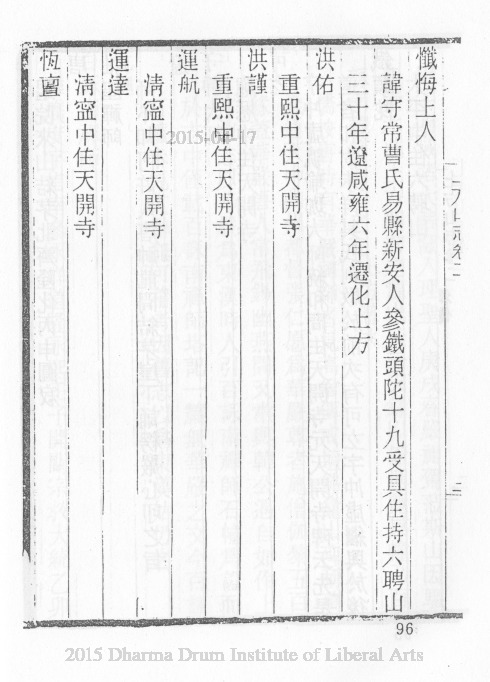 懺悔上人
諱守常曹氏易縣新安人參鐵頭陀十九受具住持六聘山
三十年遼咸雍六年遷化上方
洪佑
重熙中住天開寺
洪謹
重熙中住天開寺
運航
清寧中住天開寺
運達
清寧中住天開寺
恆亶
96
2015-04-17
2015 Dharma Drum Institute of Liberal Arts